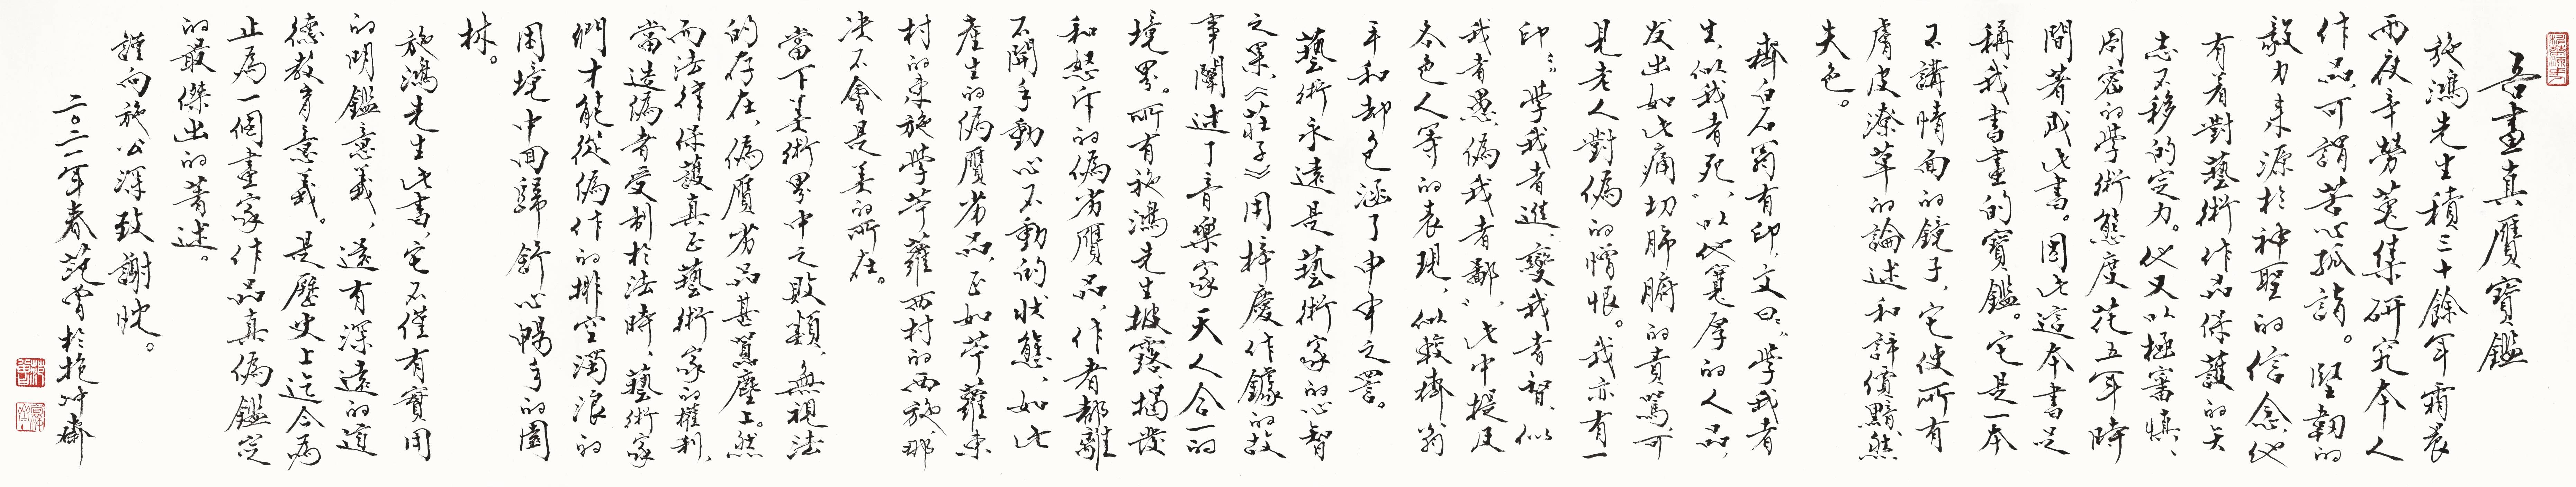 吾畫真贋寶鑑
施鴻先生積三十餘年霜晨
雨夜辛勞蒐集研究本人
作品,可謂苦心孤詣。堅韌的
毅力来源於神聖的信念,他
有着對藝術作品保護的矢
志不移的定力。他又以極審慎、
周密的學術態度花五年時
間著成此書。因此這本書足
稱我書畫的寶鑑。它是一本
不講情面的鏡子,它使所有
膚皮潦草的論述和評價黯然
失色。
齊白石翁有印,文曰:“學我者
生,似我者死”以他寬厚的人品,
发出如此痛切肺腑的責罵,可
見老人對偽的憎恨。我亦有一
印:“學我者進,變我者智,似
我者愚,偽我者鄙”,此中提及
各色人等的表現,似較齊翁
平和却包涵了申申之詈。
藝術永遠是藝術家的心智
之果,《莊子》用梓慶作鐻的故
事闡述了音樂家天人合一的
境界。所有施鴻先生披露、揭發
和怒斥的偽劣贋品,作者都離
不開手動心不動的状態,如此
產生的偽贋劣品,正如苧蘿東
村的東施學苧蘿西村的西施,那
决不會是美的所在。
當下美術界中之敗類,無視法
的存在,偽贋劣品甚囂塵上。然
而法律保護真正藝術家的權利,
當造偽者受制於法時,藝術家
們才能從偽作的排空濁浪的
困境中回歸舒心暢手的園
林。
施鴻先生此書,它不僅有實用
的明鑑意義,還有深遠的道
德教育意義。是歷史上迄今為
止為一個畫家作品真偽鑑定
的最傑出的著述。
謹向施公深致謝忱。
二〇二一年春范曾於抱冲齋